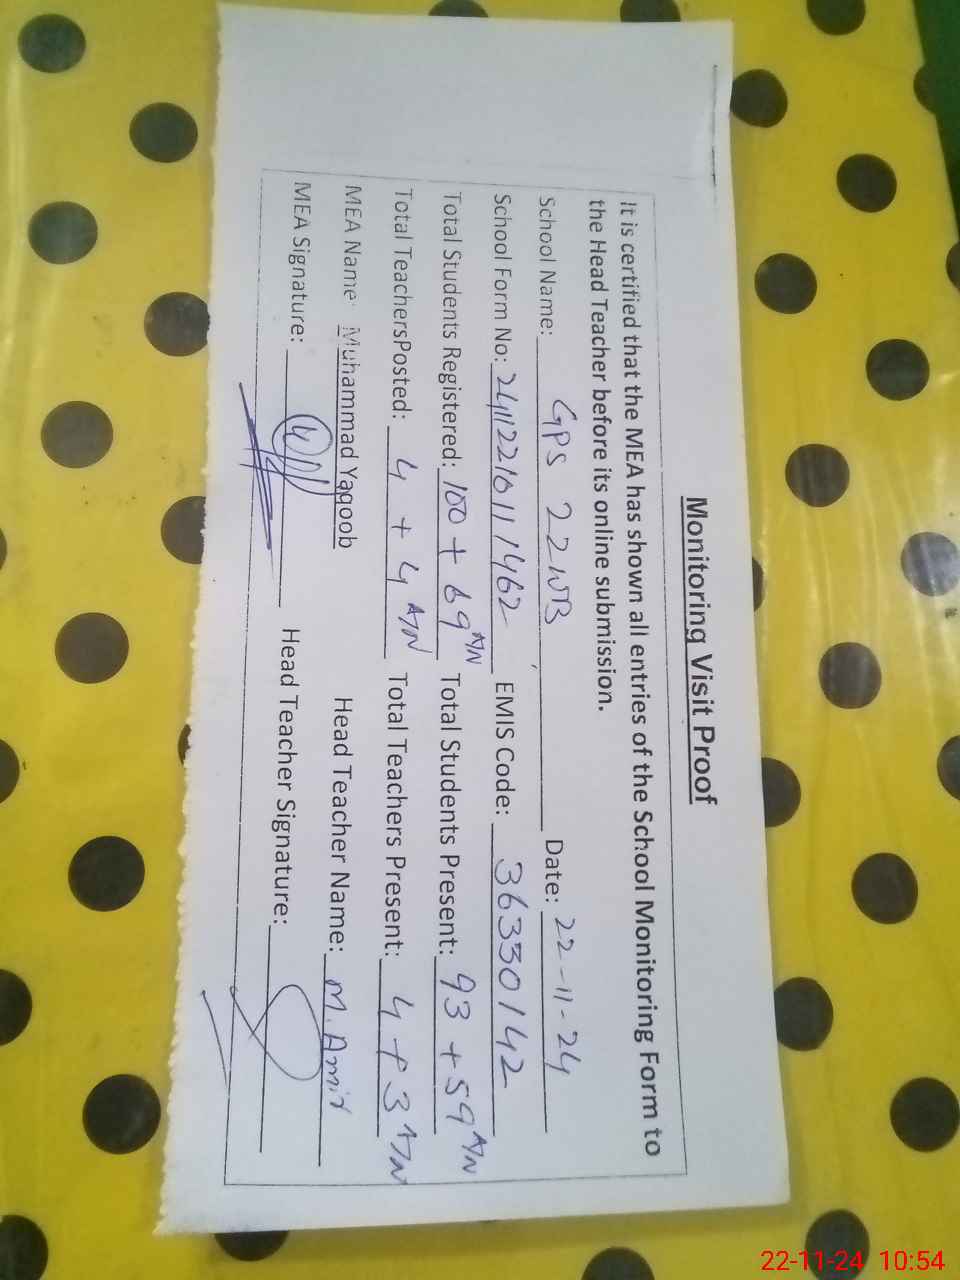 Monitoring Visit Proof
It is certified that the MEA has shown all entries of the School Monitoring Form to
the Head Teacher before its online submission.
School Name: GPS 22WB Date: 22-11-24
School Form No: 241122161111462 EMIS Code: 36330142
Total Students Registered: 100 + 69 A/N Total Students Present: 93 + 59 A/N
Total TeachersPosted: 4 + 4 A/N Total Teachers Present: 4 + 3 A/N
MEA Name: Muhammad Yaqoob Head Teacher Name: M. Amir
MEA Signature: Head Teacher Signature:
22-11-24 10:54